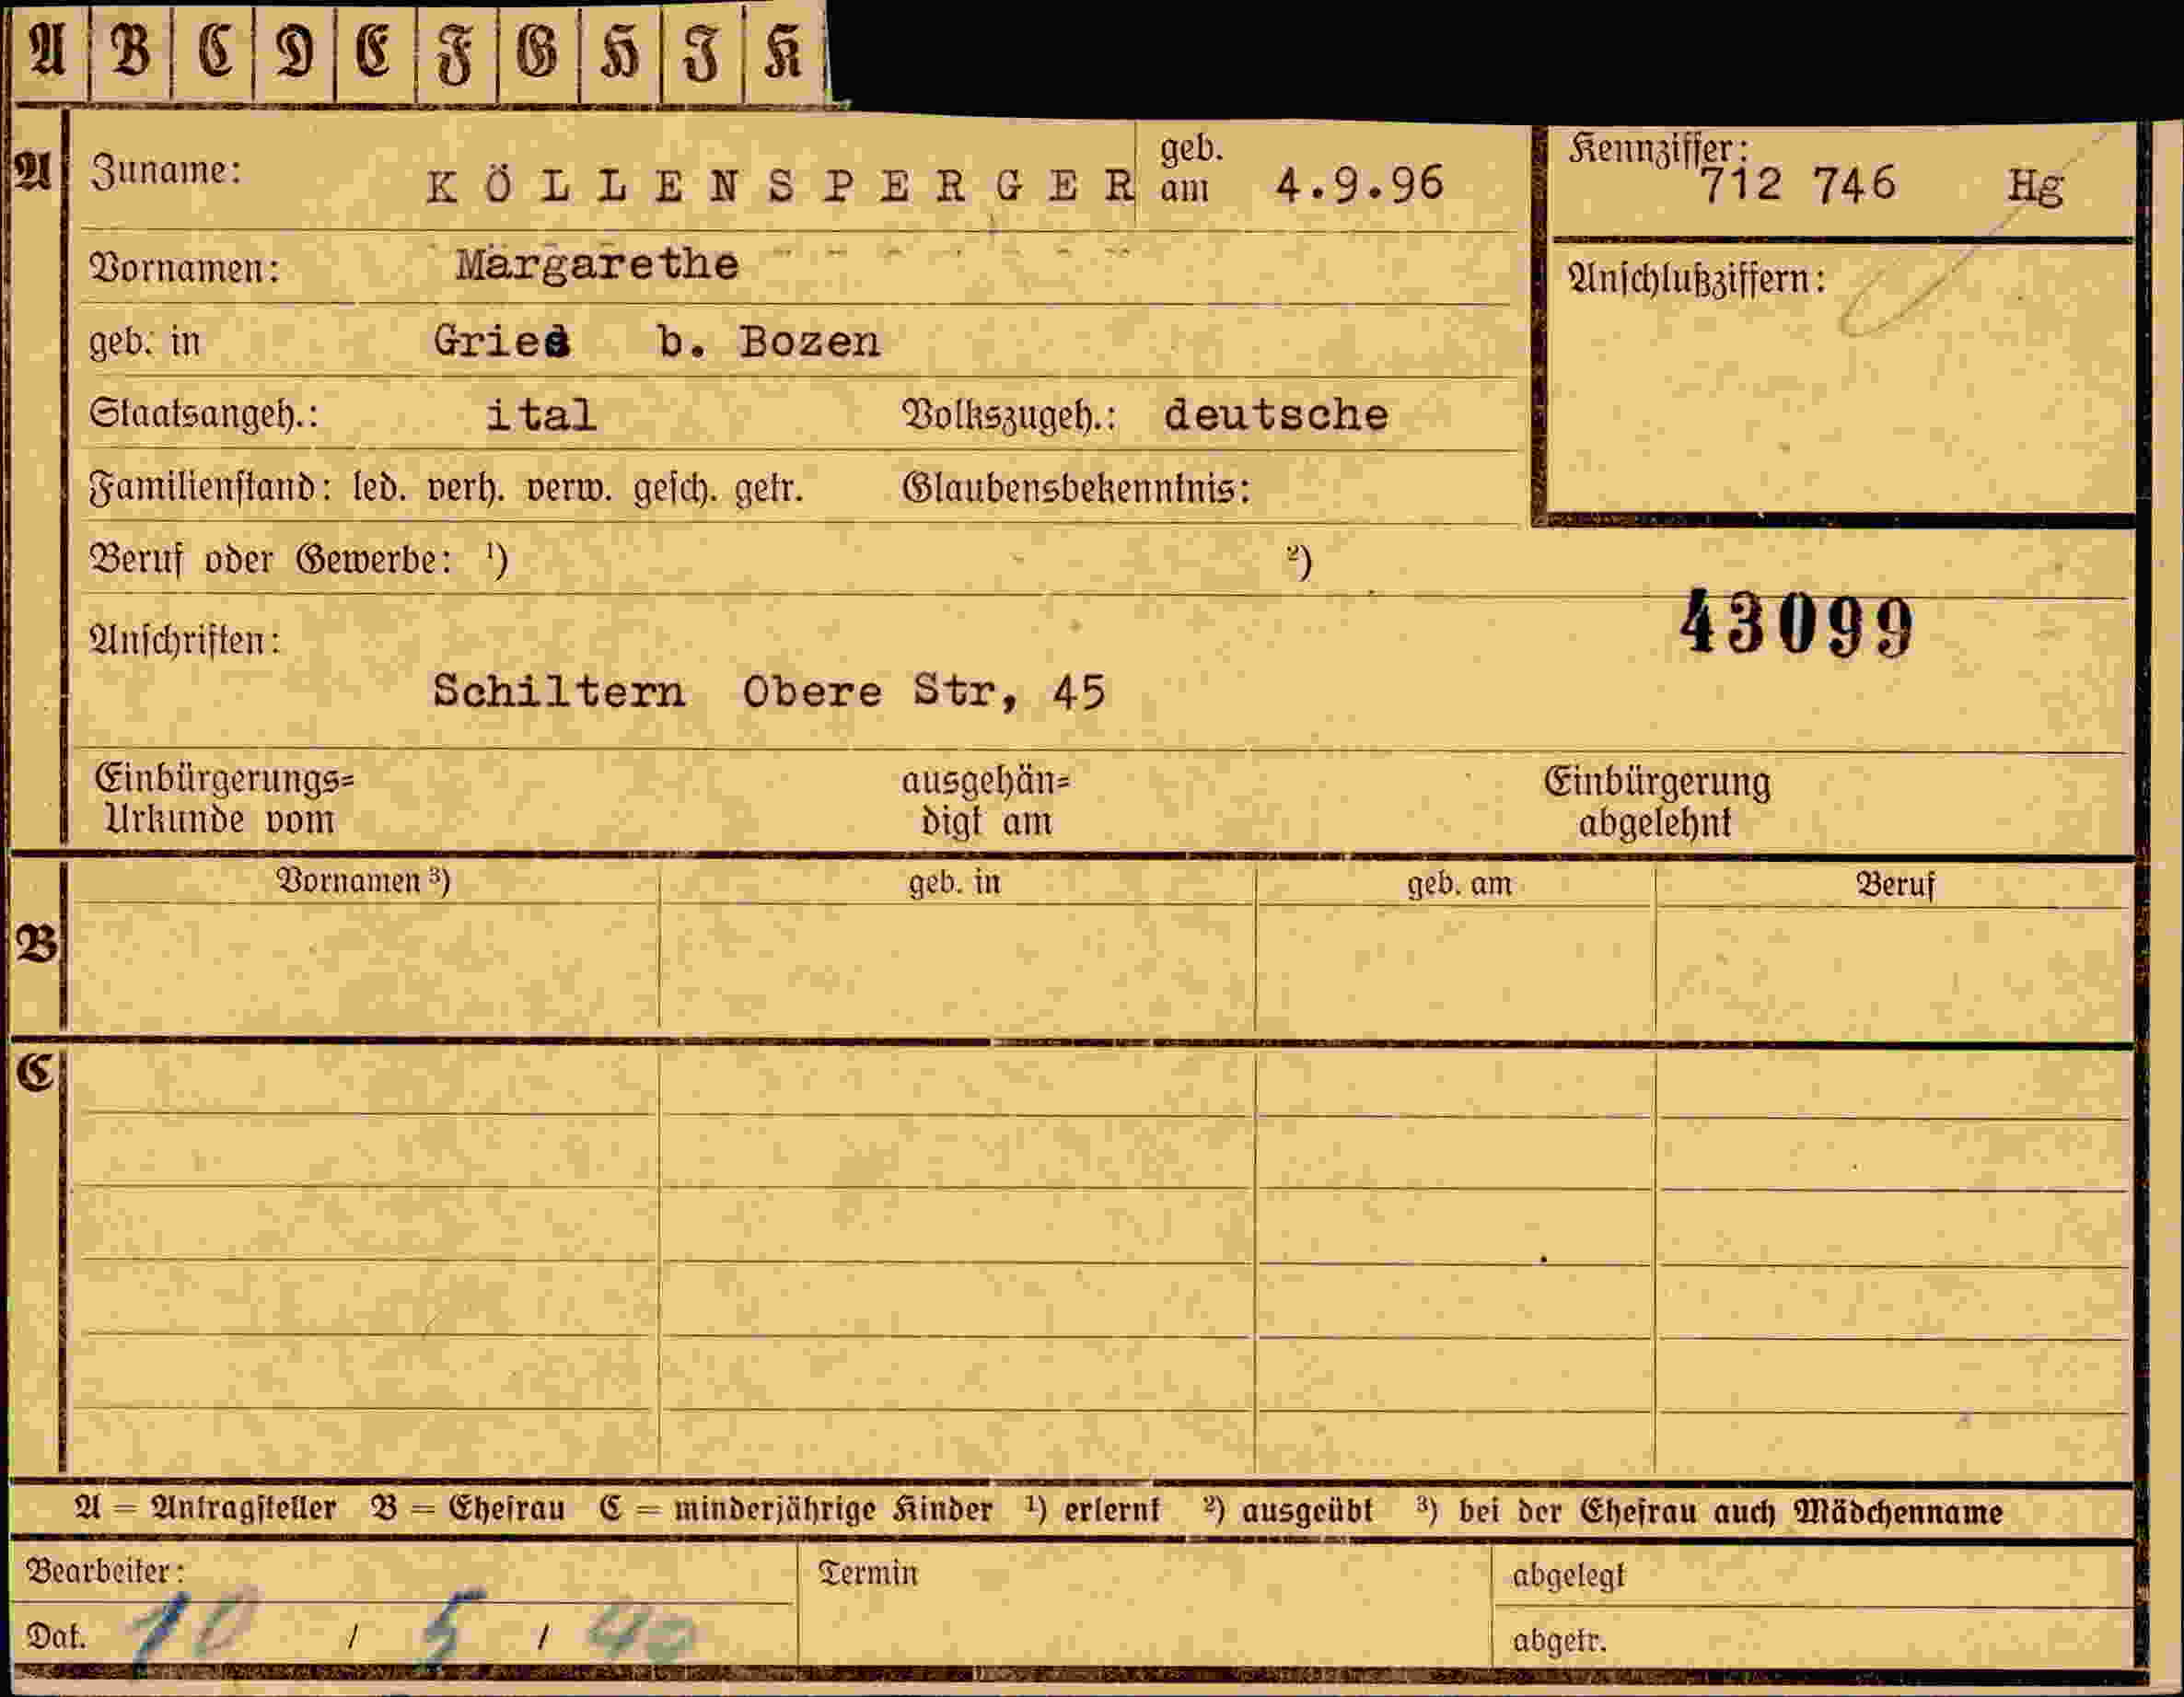 A B C D E F G H J K
A Zuname: KÖLLENSPERGER geb. am 4.9.96 Kennziffer: 712 746 Hg
Vornamen: Margarethe
Anschlußziffern:
geb. in Gries b. Bozen
Staatsangeh.: ital Volkszugeh.: deutsche
Familienstand: led. verh. verw. gesch. getr. Glaubensbekenntnis:
Beruf oder Gewerbe: ¹) ²)
43099
Anschriften:
Schiltern Obere Str, 45
Einbürgerungs= ausgehän= Einbürgerung
Urkunde vom digt am abgelehnt
Vornamen ³) geb. in geb. am Beruf
B
C
A = Antragsteller B = Ehefrau C = minderjährige Kinder ¹) erlernt ²) ausgeübt ³) bei der Ehefrau auch Mädchenname
Bearbeiter: Termin abgelegt
Dat. 10 / 5 / 40 abgetr.